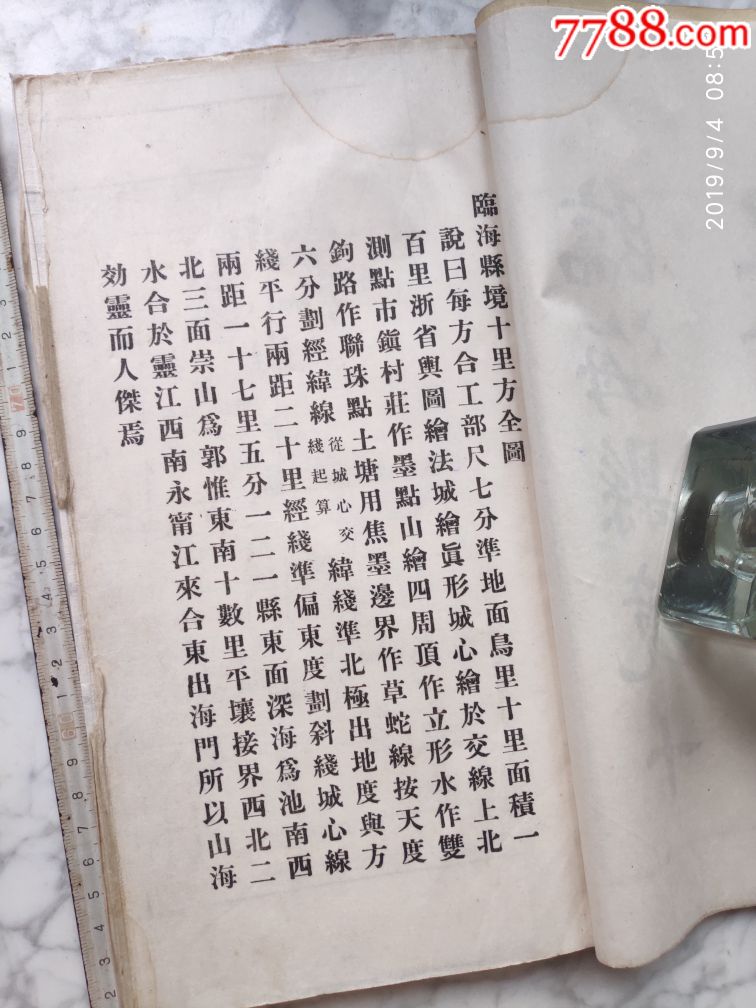 7788.com
2019/9/4 08:5
臨海縣境十里方全圖
說曰每方合工部尺七分準地面鳥里十里面積一
百里浙省輿圖繪法城繪眞形城心繪於交線上北
測點市鎭村莊作墨點山繪四周頂作立形水作雙
鉤路作聯珠點土塘用焦墨邊界作草蛇線按天度
六分劃經緯線從城心交綫起算緯綫準北極出地度與方
綫平行兩距二十里經綫準偏東度劃斜綫城心線
兩距一十七里五分一二一縣東面深海爲池南西
北三面崇山爲郭惟東南十數里平壤接界西北二
水合於靈江西南永甯江來合東出海門所以山海
効靈而人傑焉